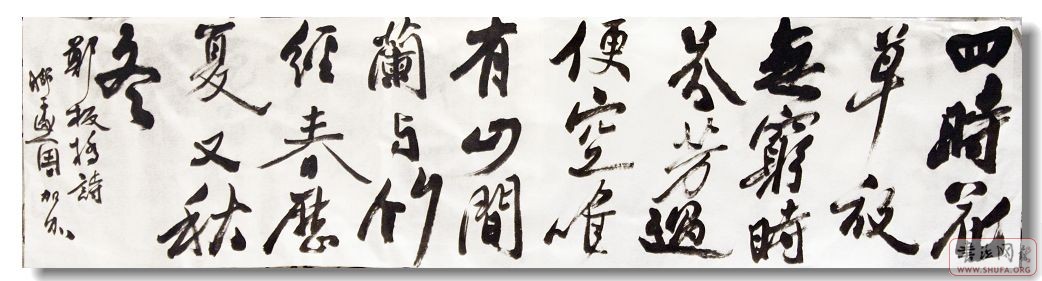 四時花
草最
無窮時
芬芳過
便空唯
有山間
蘭与竹
經春歷
夏又秋
冬
鄭板橋詩
周
書法网
WWW.SHUFA.ORG